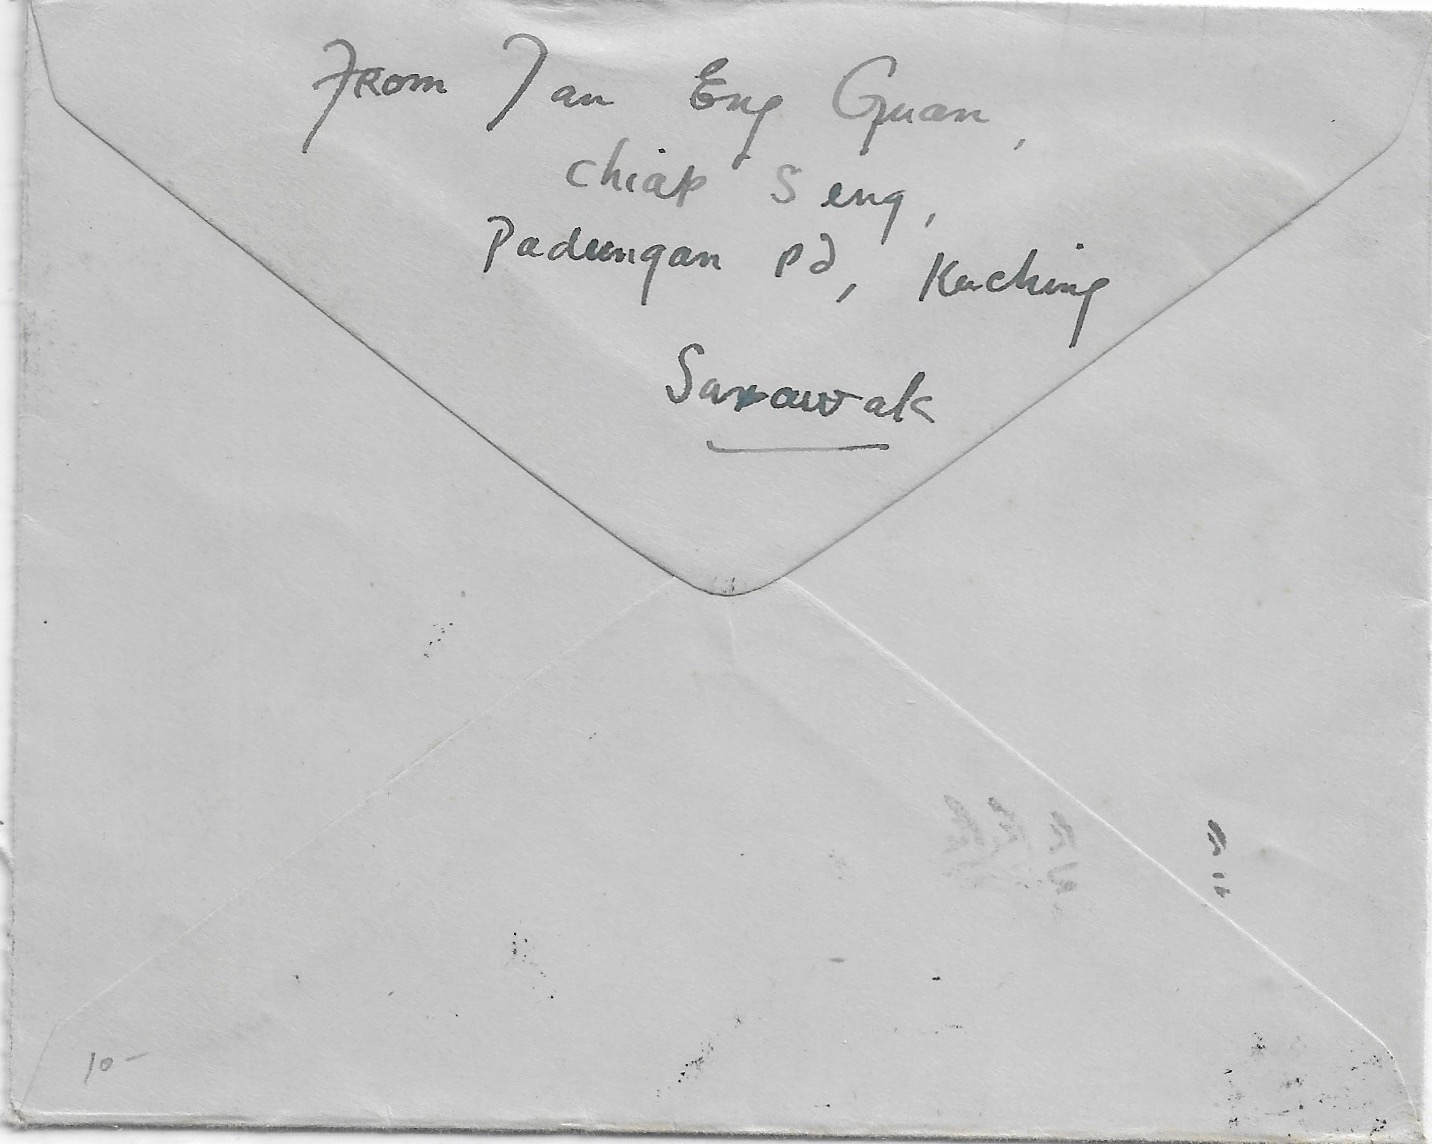 From Tan Eng Guan,
Chiap Seng,
Padungan Rd, Kuching
Sarawak
10-